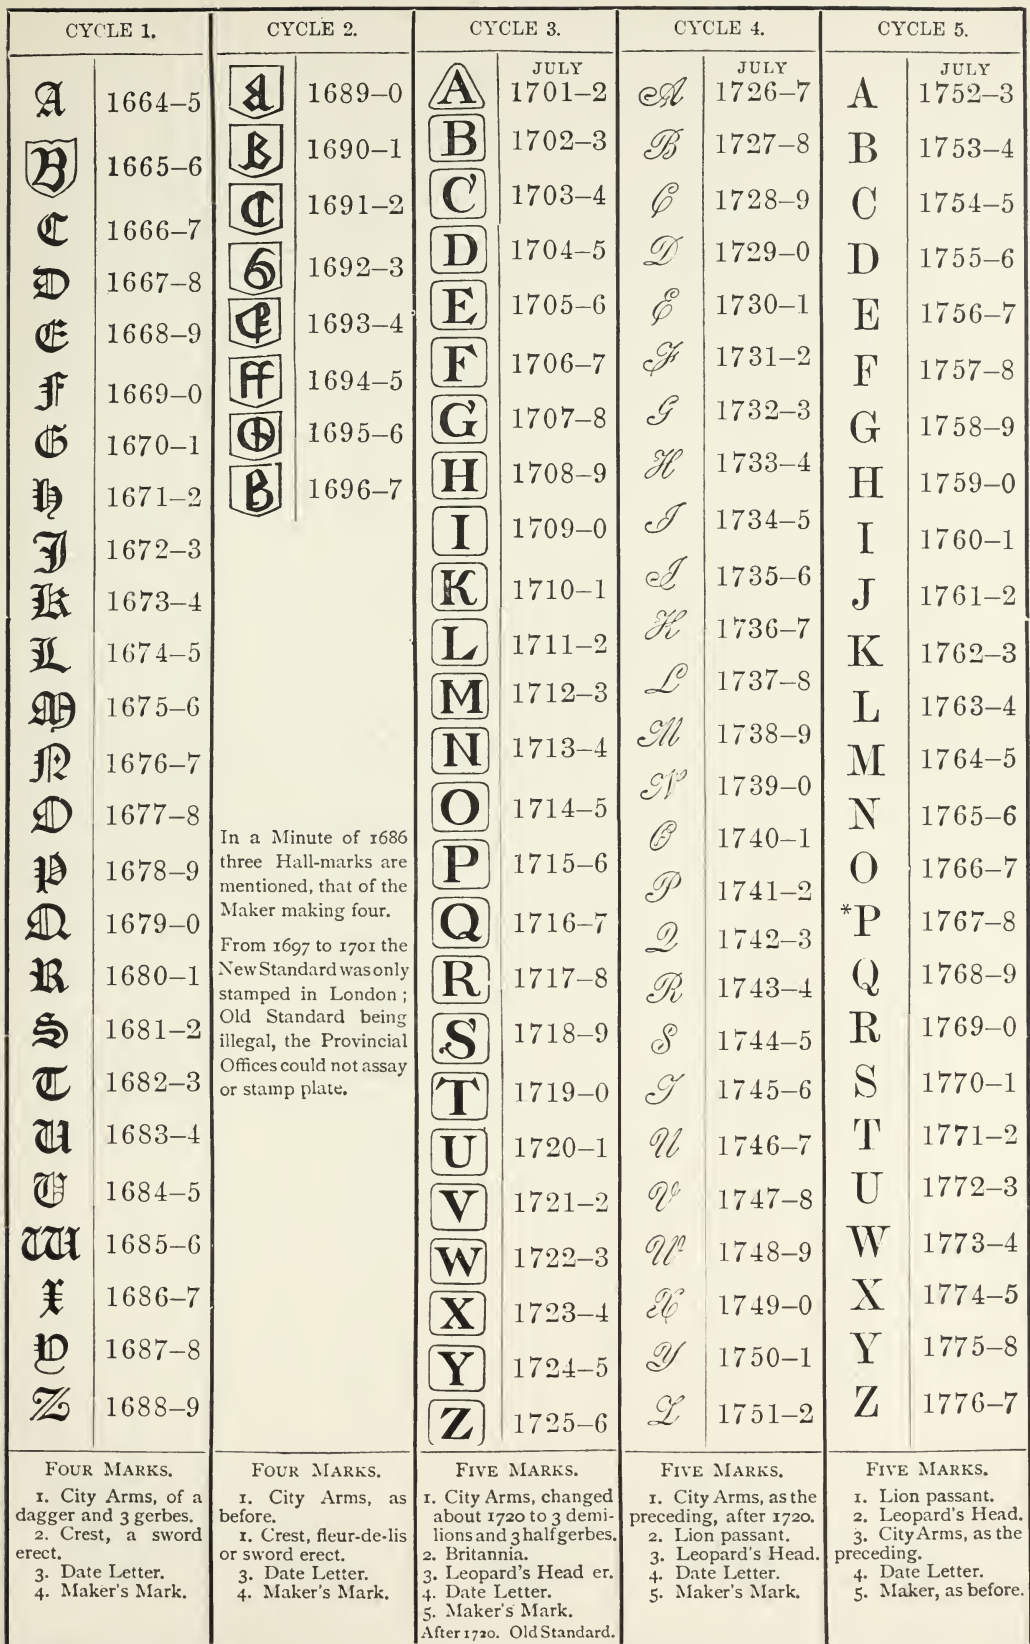 CYCLE 1.
A 1664–5
B 1665–6
C 1666–7
D 1667–8
E 1668–9
F 1669–0
G 1670–1
H 1671–2
J 1672–3
K 1673–4
L 1674–5
M 1675–6
N 1676–7
O 1677–8
P 1678–9
Q 1679–0
R 1680–1
S 1681–2
T 1682–3
U 1683–4
V 1684–5
W 1685–6
X 1686–7
Y 1687–8
Z 1688–9
FOUR MARKS.
1. City Arms, of a
dagger and 3 gerbes.
2. Crest, a sword
erect.
3. Date Letter.
4. Maker's Mark.
CYCLE 2.
1689–0
B 1690–1
C 1691–2
1692–3
1693–4
ff 1694–5
1695–6
B 1696–7
In a Minute of 1686
three Hall-marks are
mentioned, that of the
Maker making four.
From 1697 to 1701 the
New Standard was only
stamped in London ;
Old Standard being
illegal, the Provincial
Offices could not assay
or stamp plate.
FOUR MARKS.
1. City Arms, as
before.
1. Crest, fleur-de-lis
or sword erect.
3. Date Letter.
4. Maker's Mark.
CYCLE 3.
JULY
A 1701–2
B 1702–3
C 1703–4
D 1704–5
E 1705–6
F 1706–7
G 1707–8
H 1708–9
I 1709–0
K 1710–1
L 1711–2
M 1712–3
N 1713–4
O 1714–5
P 1715–6
Q 1716–7
R 1717–8
S 1718–9
T 1719–0
U 1720–1
V 1721–2
W 1722–3
X 1723–4
Y 1724–5
Z 1725–6
FIVE MARKS.
1. City Arms, changed
about 1720 to 3 demi-
lions and 3 half gerbes.
2. Britannia.
3. Leopard's Head er.
4. Date Letter.
5. Maker's Mark.
After 1720. Old Standard.
CYCLE 4.
JULY
A 1726–7
B 1727–8
C 1728–9
D 1729–0
E 1730–1
F 1731–2
G 1732–3
H 1733–4
I 1734–5
J 1735–6
K 1736–7
L 1737–8
M 1738–9
N 1739–0
O 1740–1
P 1741–2
Q 1742–3
R 1743–4
S 1744–5
T 1745–6
U 1746–7
V 1747–8
W 1748–9
X 1749–0
Y 1750–1
Z 1751–2
FIVE MARKS.
1. City Arms, as the
preceding, after 1720.
2. Lion passant.
3. Leopard's Head.
4. Date Letter.
5. Maker's Mark.
CYCLE 5.
JULY
A 1752–3
B 1753–4
C 1754–5
D 1755–6
E 1756–7
F 1757–8
G 1758–9
H 1759–0
I 1760–1
J 1761–2
K 1762–3
L 1763–4
M 1764–5
N 1765–6
O 1766–7
*P 1767–8
Q 1768–9
R 1769–0
S 1770–1
T 1771–2
U 1772–3
W 1773–4
X 1774–5
Y 1775–8
Z 1776–7
FIVE MARKS.
1. Lion passant.
2. Leopard's Head.
3. City Arms, as the
preceding.
4. Date Letter.
5. Maker, as before.